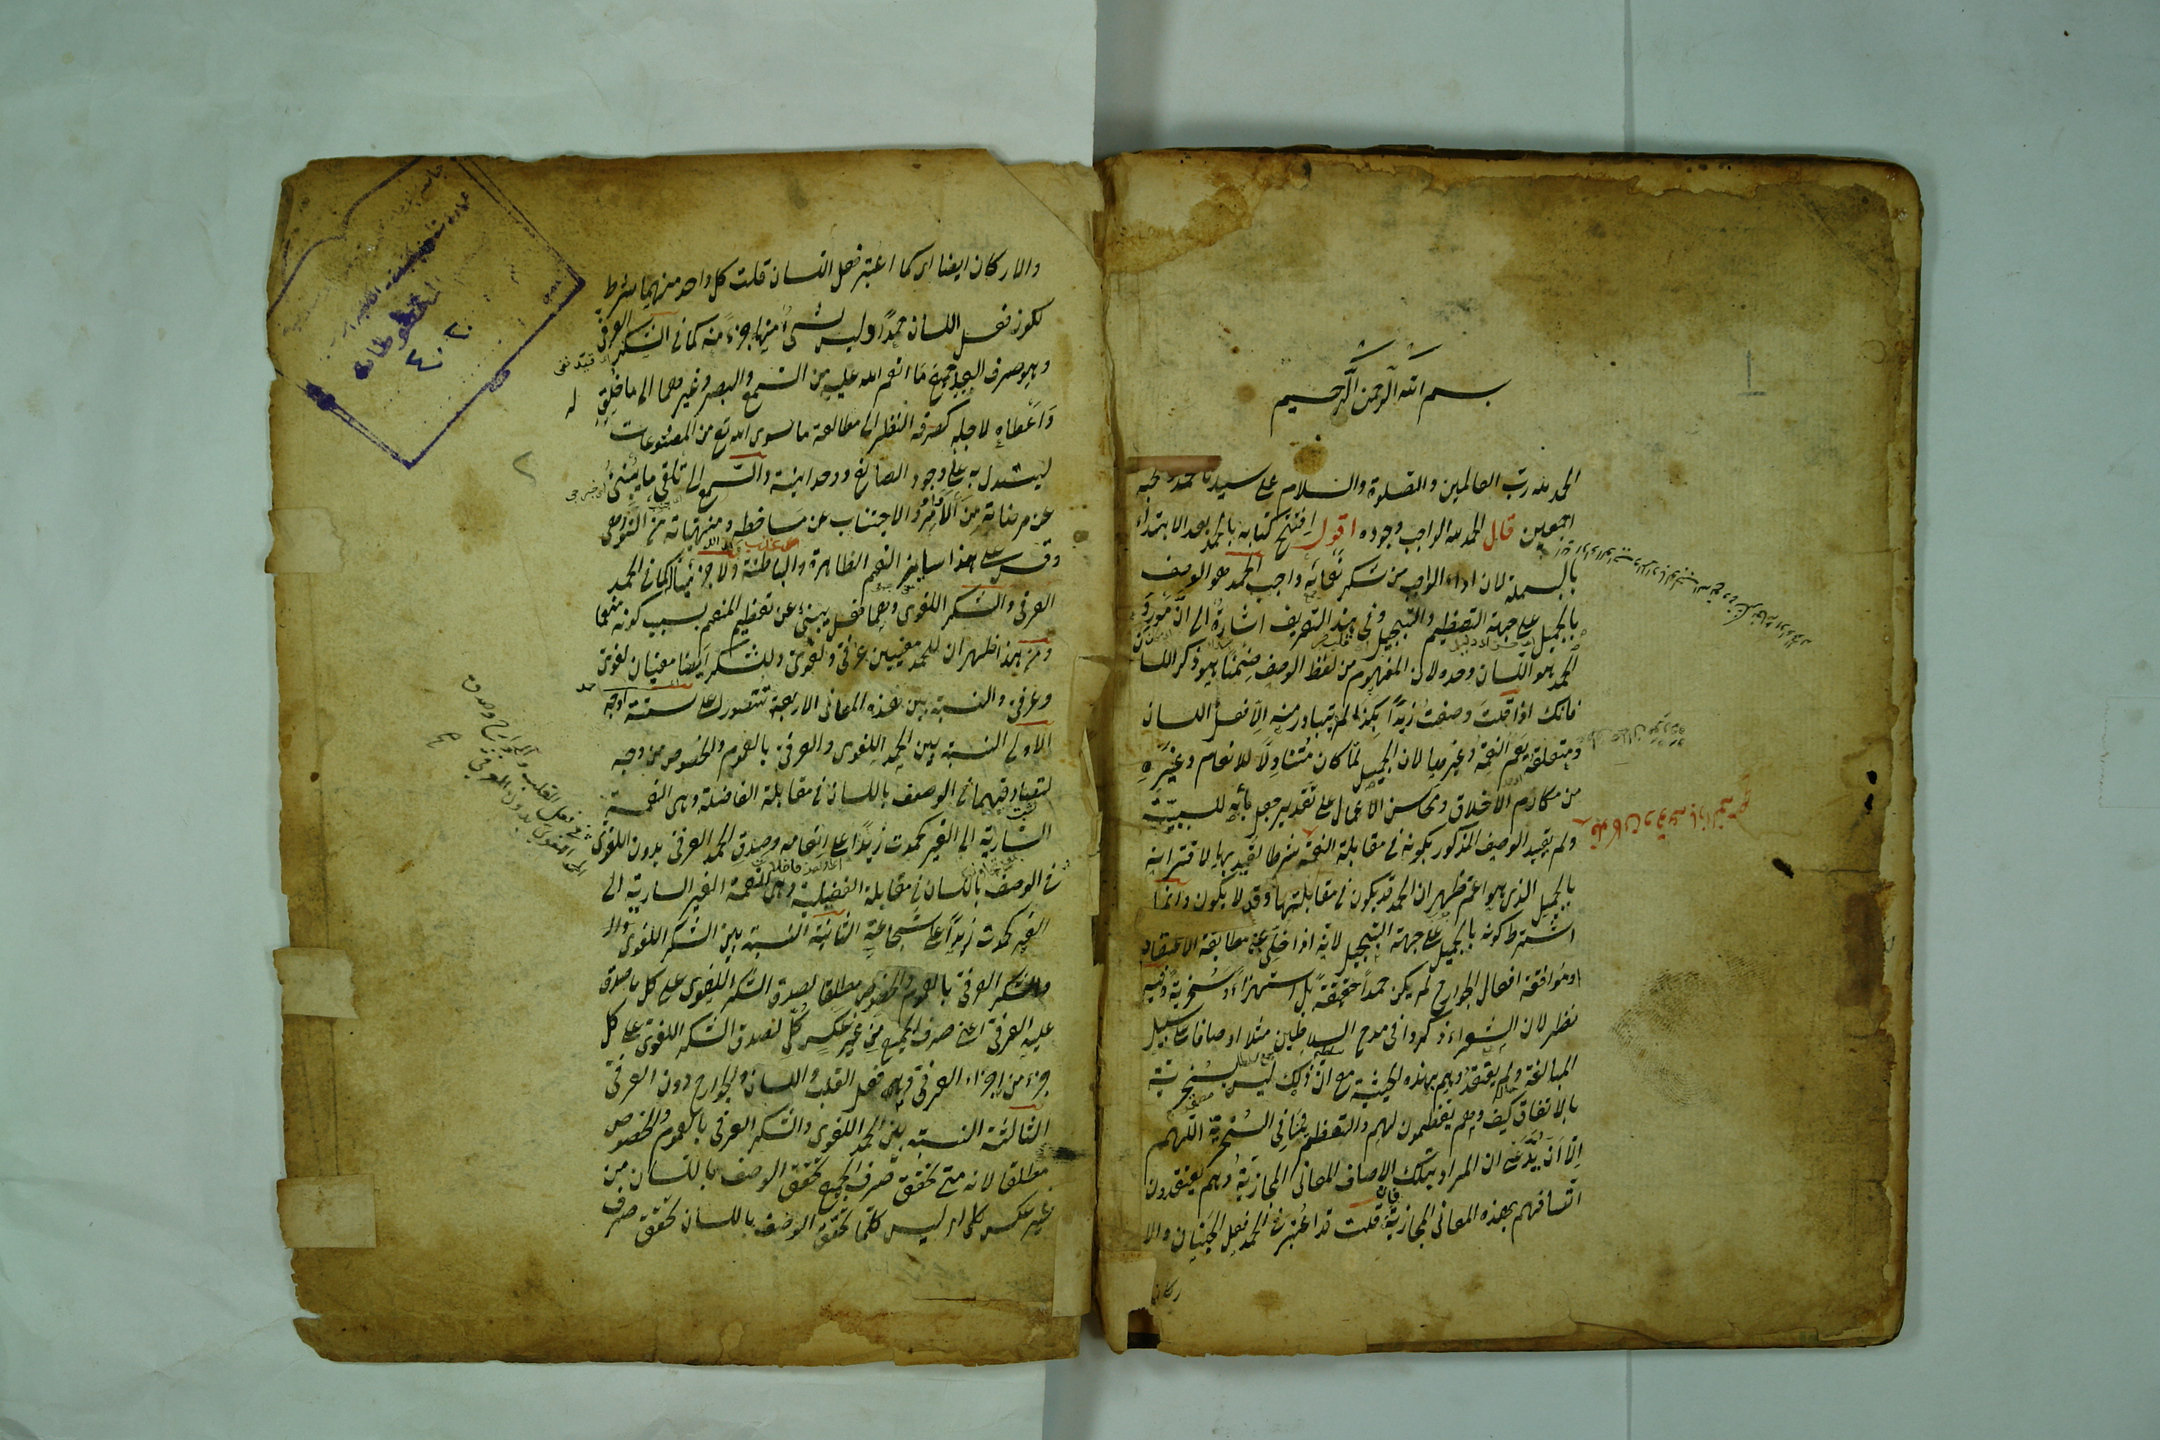 بسم الله الرحمن الرحيم
الحمد لله رب العالمين والصلوة والسلام على سيدنا محمد وصحبه
اجمعين قال الحمد لله الواجب وجوده اقول افتتح كتابه بالحمد بعد الابتداء
بالبسملة لان اداء الواجب من شكر نعمائه واجب الحمد هو الوصف
بالجميل على جهة التعظيم والتبجيل وفى هذا التعريف اشارة الى ان مورد
الحمد هو اللسان وحده لان المفهوم من لفظ الوصف ضمنا هو ذكر اللسا
فانك اذا قلت وصفت زيدا بكذا لم يتبادر منه الا فعل اللسان
ومتعلقه يعم النعمة وغيرها لان الجميل لما كان متناولا للانعام وغيره
من مكارم الاخلاق ومحاسن الاعمال على تقدير جعل بائه للسببية
ولم يقيد الوصف المذكور بكونه فى مقابلة النعمة شرطا لقيد بها لاقترانه
بالجميل الذى هو اعم ظهر ان الحمد قد يكون فى مقابلتها وقد لا يكون وانما
اشترط كونه بالجميل على جهة التبجيل لانه اذا خلى عن مطابقة الاعتقاد
او موافقة افعال الجوارح لم يكن حمدا حقيقة بل استهزاء وسخرية وفيه
نظر لان الشعراء ذكروا فى مدح السلاطين مثلا اوصافا على سبيل
المبالغة ولم يعتقدوهم بهذه الحيثية مع ان ذلك ليس بسخرية
بالاتفاق كيف وهم يعظمون لهم والتعظيم ينافى السخرية اللهم
الا ان يدعى ان المراد بتلك الاوصاف المعانى المجازية وهم يعتقدون
اتصافهم بهذه المعانى المجازية فان قلت قد اعتبر فى الحمد فعل الجنان والا
ركان
والاركان ايضا كما اعتبر فعل اللسان قلت كل واحد منهما شرط
لكون فعل اللسان حمدا وليس شىء منهما جزء منه كما فى الشكر العرفى
وهو صرف العبد جميع ما انعم الله عليه من السمع والبصر وغيرهما الى ما خلق له
واعطاه لاجله كصرفه النظر الى مطالعة ما سوى الله تع من المصنوعات
ليستدل به على وجود الصانع ووحدانيته والسمع الى تلقى ما ينبئ
عن مرضاته من الاوامر والاجتناب عن مساخطه ومنهياته من النواهى
وقس على هذا سائر النعم الظاهرة والباطنة ولا جزئيا كما فى الحمد
العرفى والشكر اللغوى وهما فعل ينبئ عن تعظيم المنعم بسبب كونه منعما
ومن هذا ظهر ان للحمد معنيين عرفى ولغوى وللشكر ايضا معنيان لغوى
وعرفى والنسبة بين هذه المعانى الاربعة تتصور على ستة اوجه
الاولى النسبة بين الحمد اللغوى والعرفى بالعموم والخصوص من وجه
لتصادقهما فى الوصف باللسان فى مقابلة الفاضلة وهى النعمة
السارية الى الغير كحمدت زيدا على انعامه وصدق الحمد العرفى بدون اللغوى
فى الوصف باللسان فى مقابلة الفضيلة وهى النعمة الغير السارية الى
الغير كحمدت زيدا على شجاعته الثانية النسبة بين الشكر اللغوى
والشكر العرفى بالعموم والخصوص مطلقا لصدق الشكر اللغوى على كل ما صدق
عليه العرفى اعنى صرف الجميع من غير عكس كلى لصدق الشكر اللغوى على كل
جزء من اجزاء العرفى وهو فعل القلب واللسان والجوارح دون العرفى
الثالثة النسبة بين الحمد اللغوى والشكر العرفى بالعموم والخصوص
مطلقا لانه متى تحقق صرف الجميع تحقق الوصف باللسان من
غير عكس كلى اذ ليس كلما تحقق الوصف باللسان تحقق صرف
فى فعل القلب والجوارح وصدق
الحمد اللغوى بدون العرفى
المخطوطات